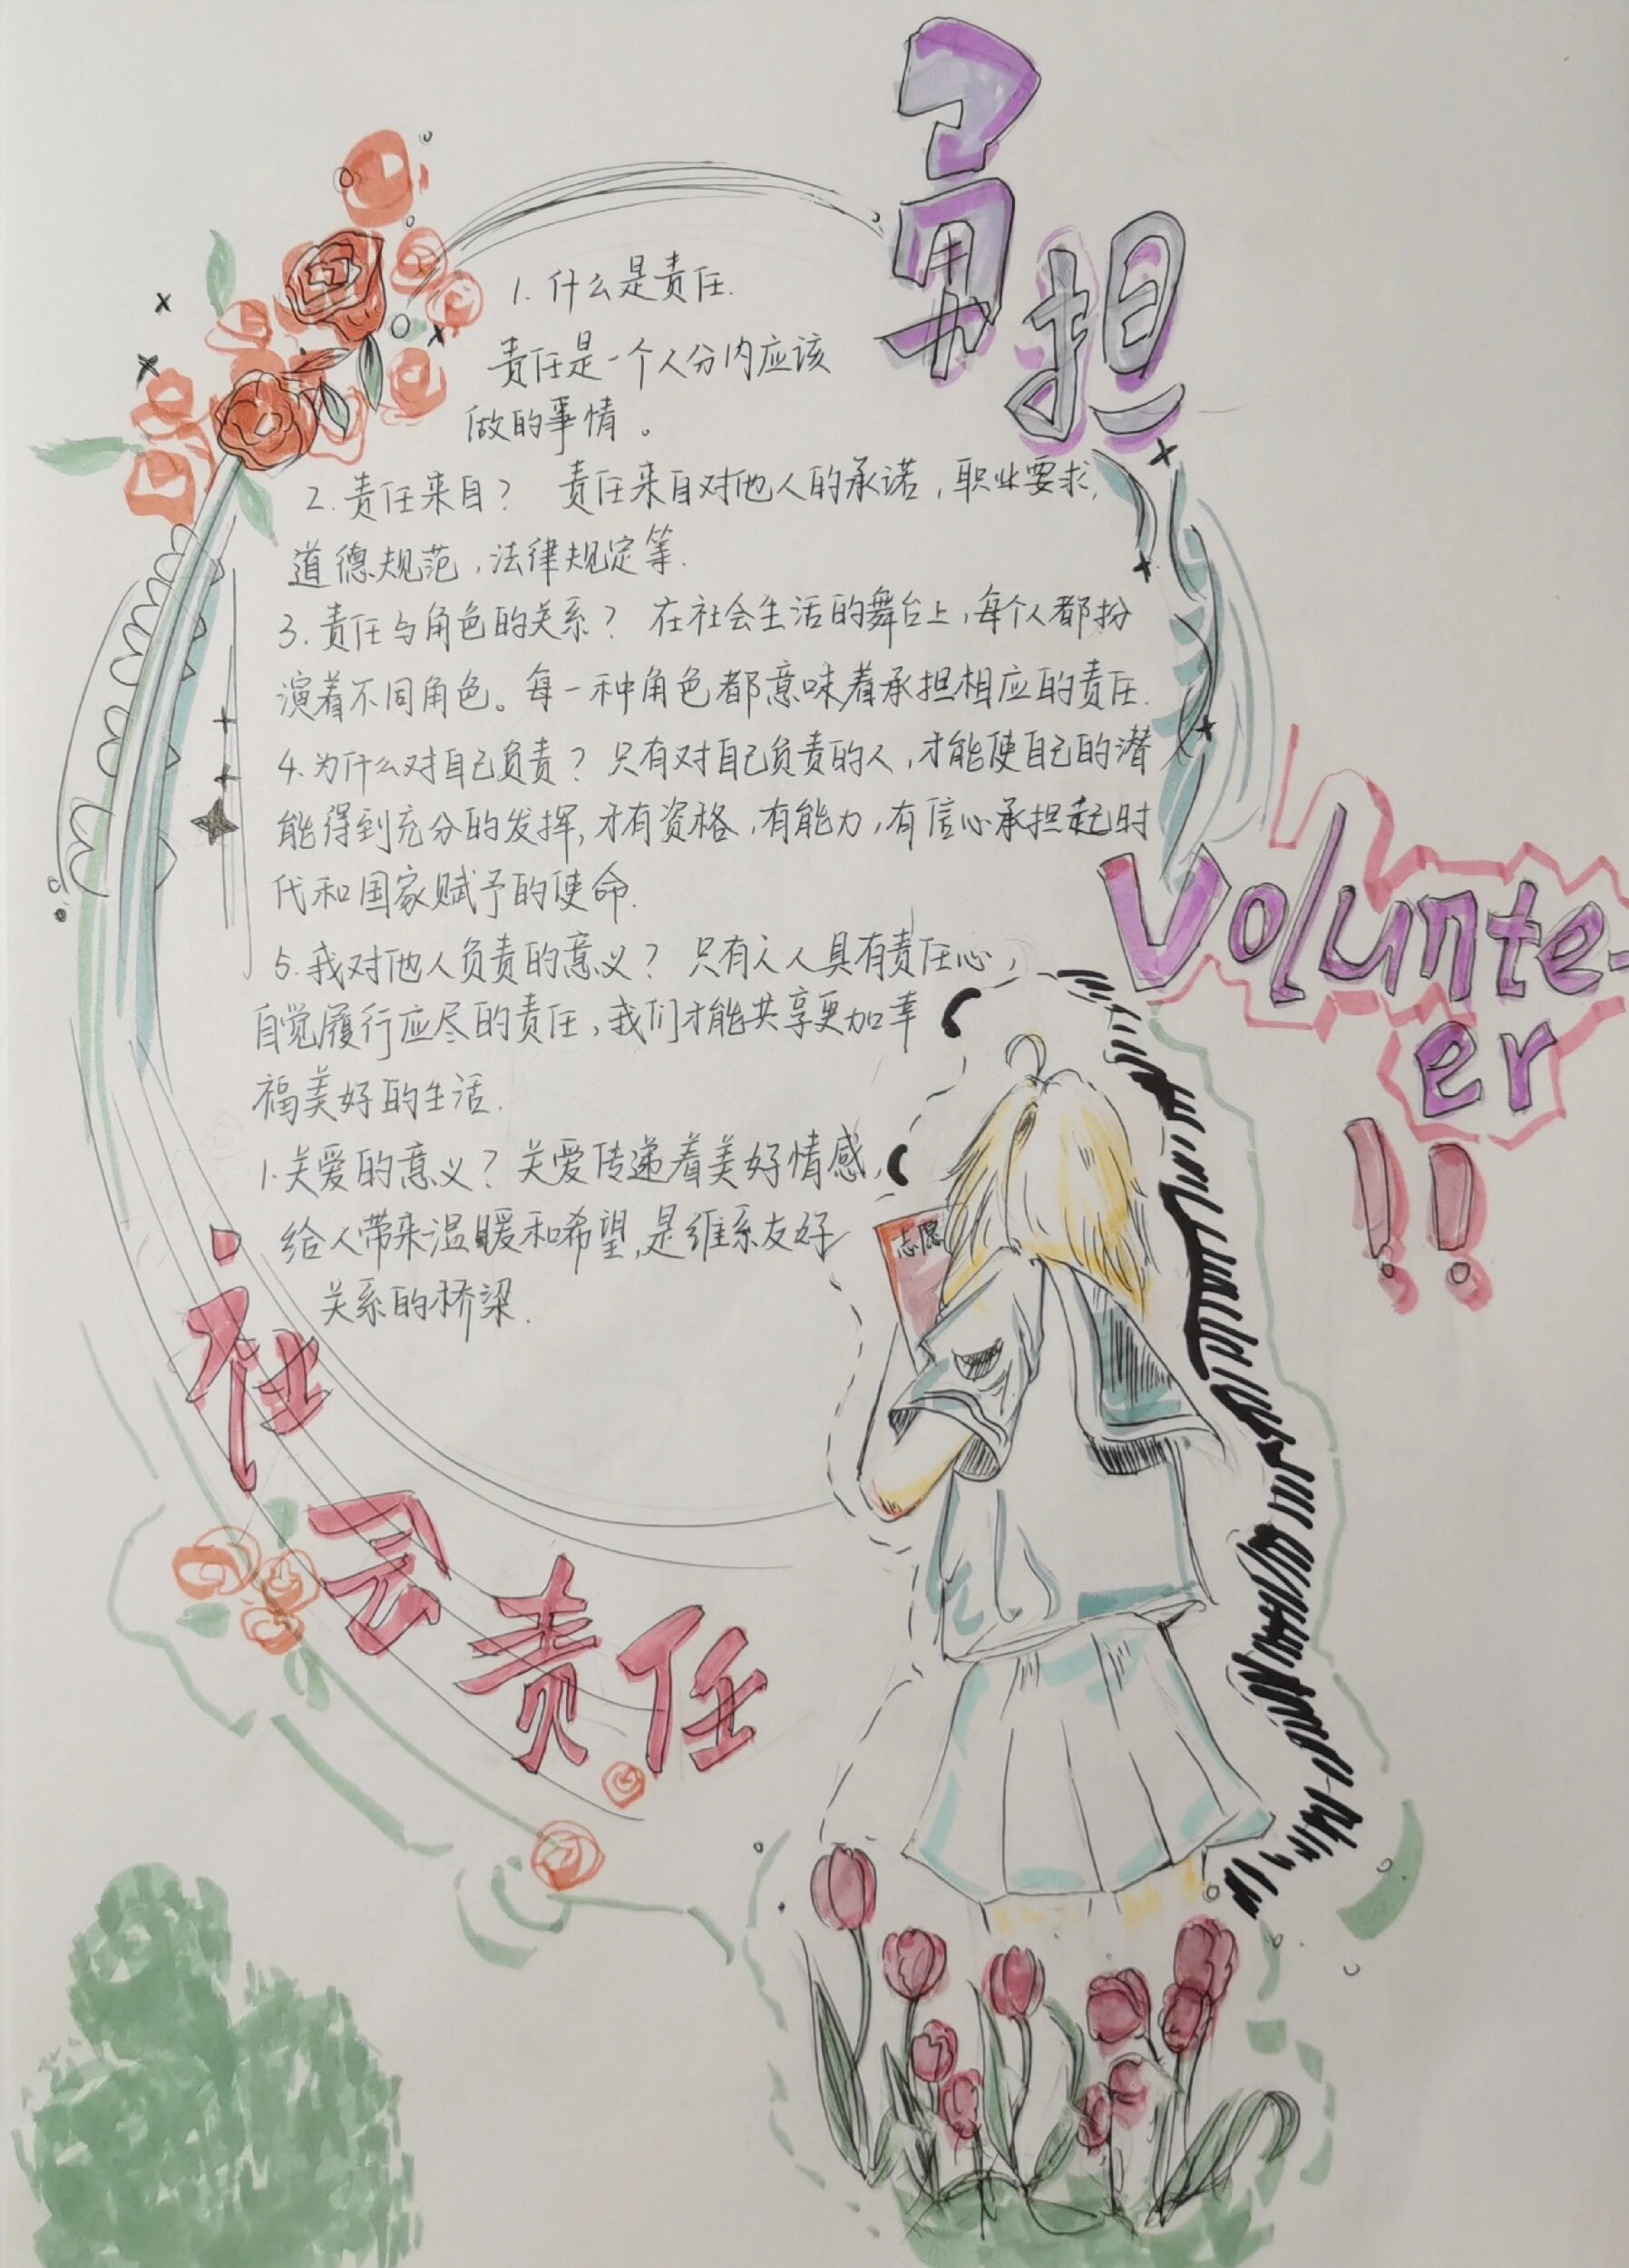 勇担
1. 什么是责任.
责任是一个人分内应该
做的事情。
2. 责任来自? 责任来自对他人的承诺,职业要求,
道德规范,法律规定等.
3. 责任与角色的关系? 在社会生活的舞台上,每个人都扮
演着不同角色。每一种角色都意味着承担相应的责任.
4. 为什么对自己负责? 只有对自己负责的人,才能使自己的潜
能得到充分的发挥,才有资格,有能力,有信心承担起时
代和国家赋予的使命.
5. 我对他人负责的意义? 只有人人具有责任心,
自觉履行应尽的责任,我们才能共享更加幸
福美好的生活.
1. 关爱的意义? 关爱传递着美好情感,
给人带来温暖和希望,是维系友好
关系的桥梁.
Volunte-
er
!!
志愿
社会责任